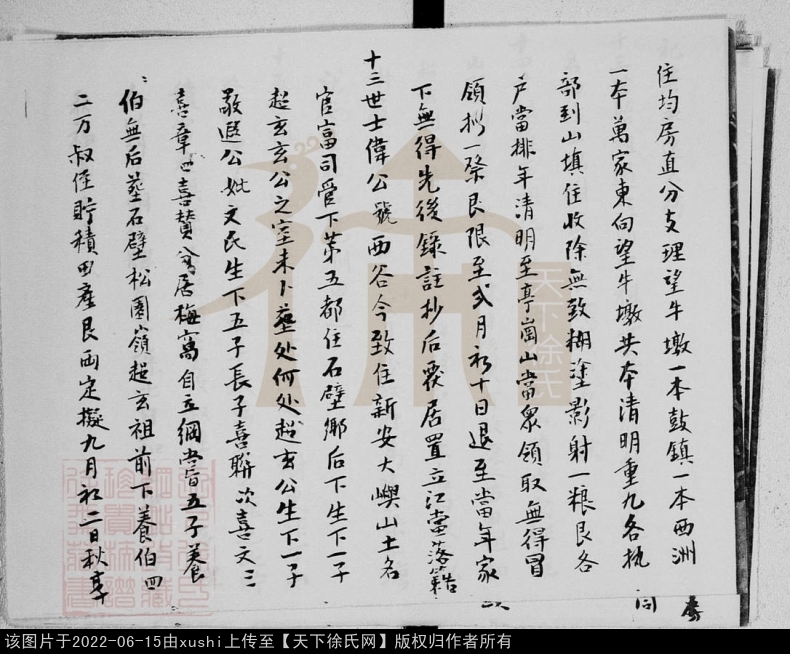 住均房直分支理望牛墩一本鼓鎮一本西洲
一本萬家東向望牛墩共本清明重九各执
部到山填住收除無致糊塗影射一粮艮各
户當排年清明至亭崗山當衆領取無得冒
領拟一祭艮限至弍月初十日退至當年家
下無得先後錄註抄后覆居置立江當落籍
十三世士偉公號西谷今致住新安大嶼山土名
官富司管下苐五都住石壁鄉后下生下一子
超玄玄公之室未卜塟处何处超玄公生下一子
敬遐公妣文氏生下五子長子喜聯次喜文三
喜章四喜贊分居梅窩自立綱嘗五子養
伯無后塟石壁松園嶺超玄祖前下養伯四
二万叔侄貯積田產艮両定擬九月初二日秋享
天下徐氏
该图片于2022-06-15由xushi上传至【天下徐氏网】版权归作者所有